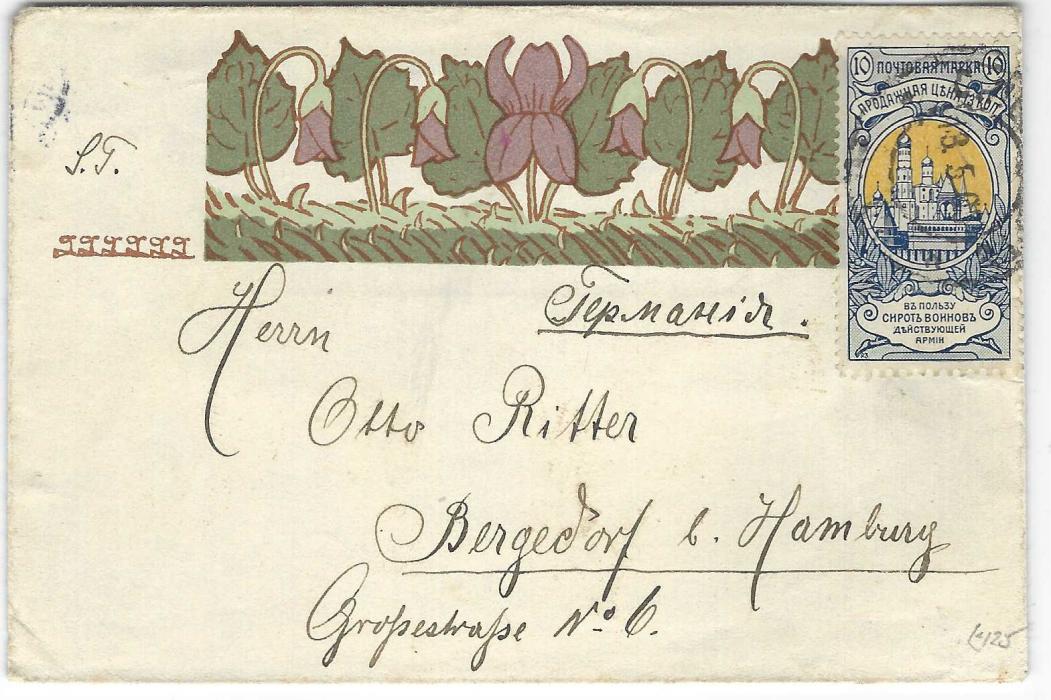 10 ПОЧТОВАЯ МАРКА 10
ПРОДАЖНАЯ ЦѢНА 13 КОП
S.T.
ВЪ ПОЛЬЗУ
СИРОТЪ ВОИНОВЪ
ДѢЙСТВУЮЩЕЙ
АРМІИ
Германія.
Herrn
Otto Ritter
Bergedorf b. Hamburg
Großestraße No 6.